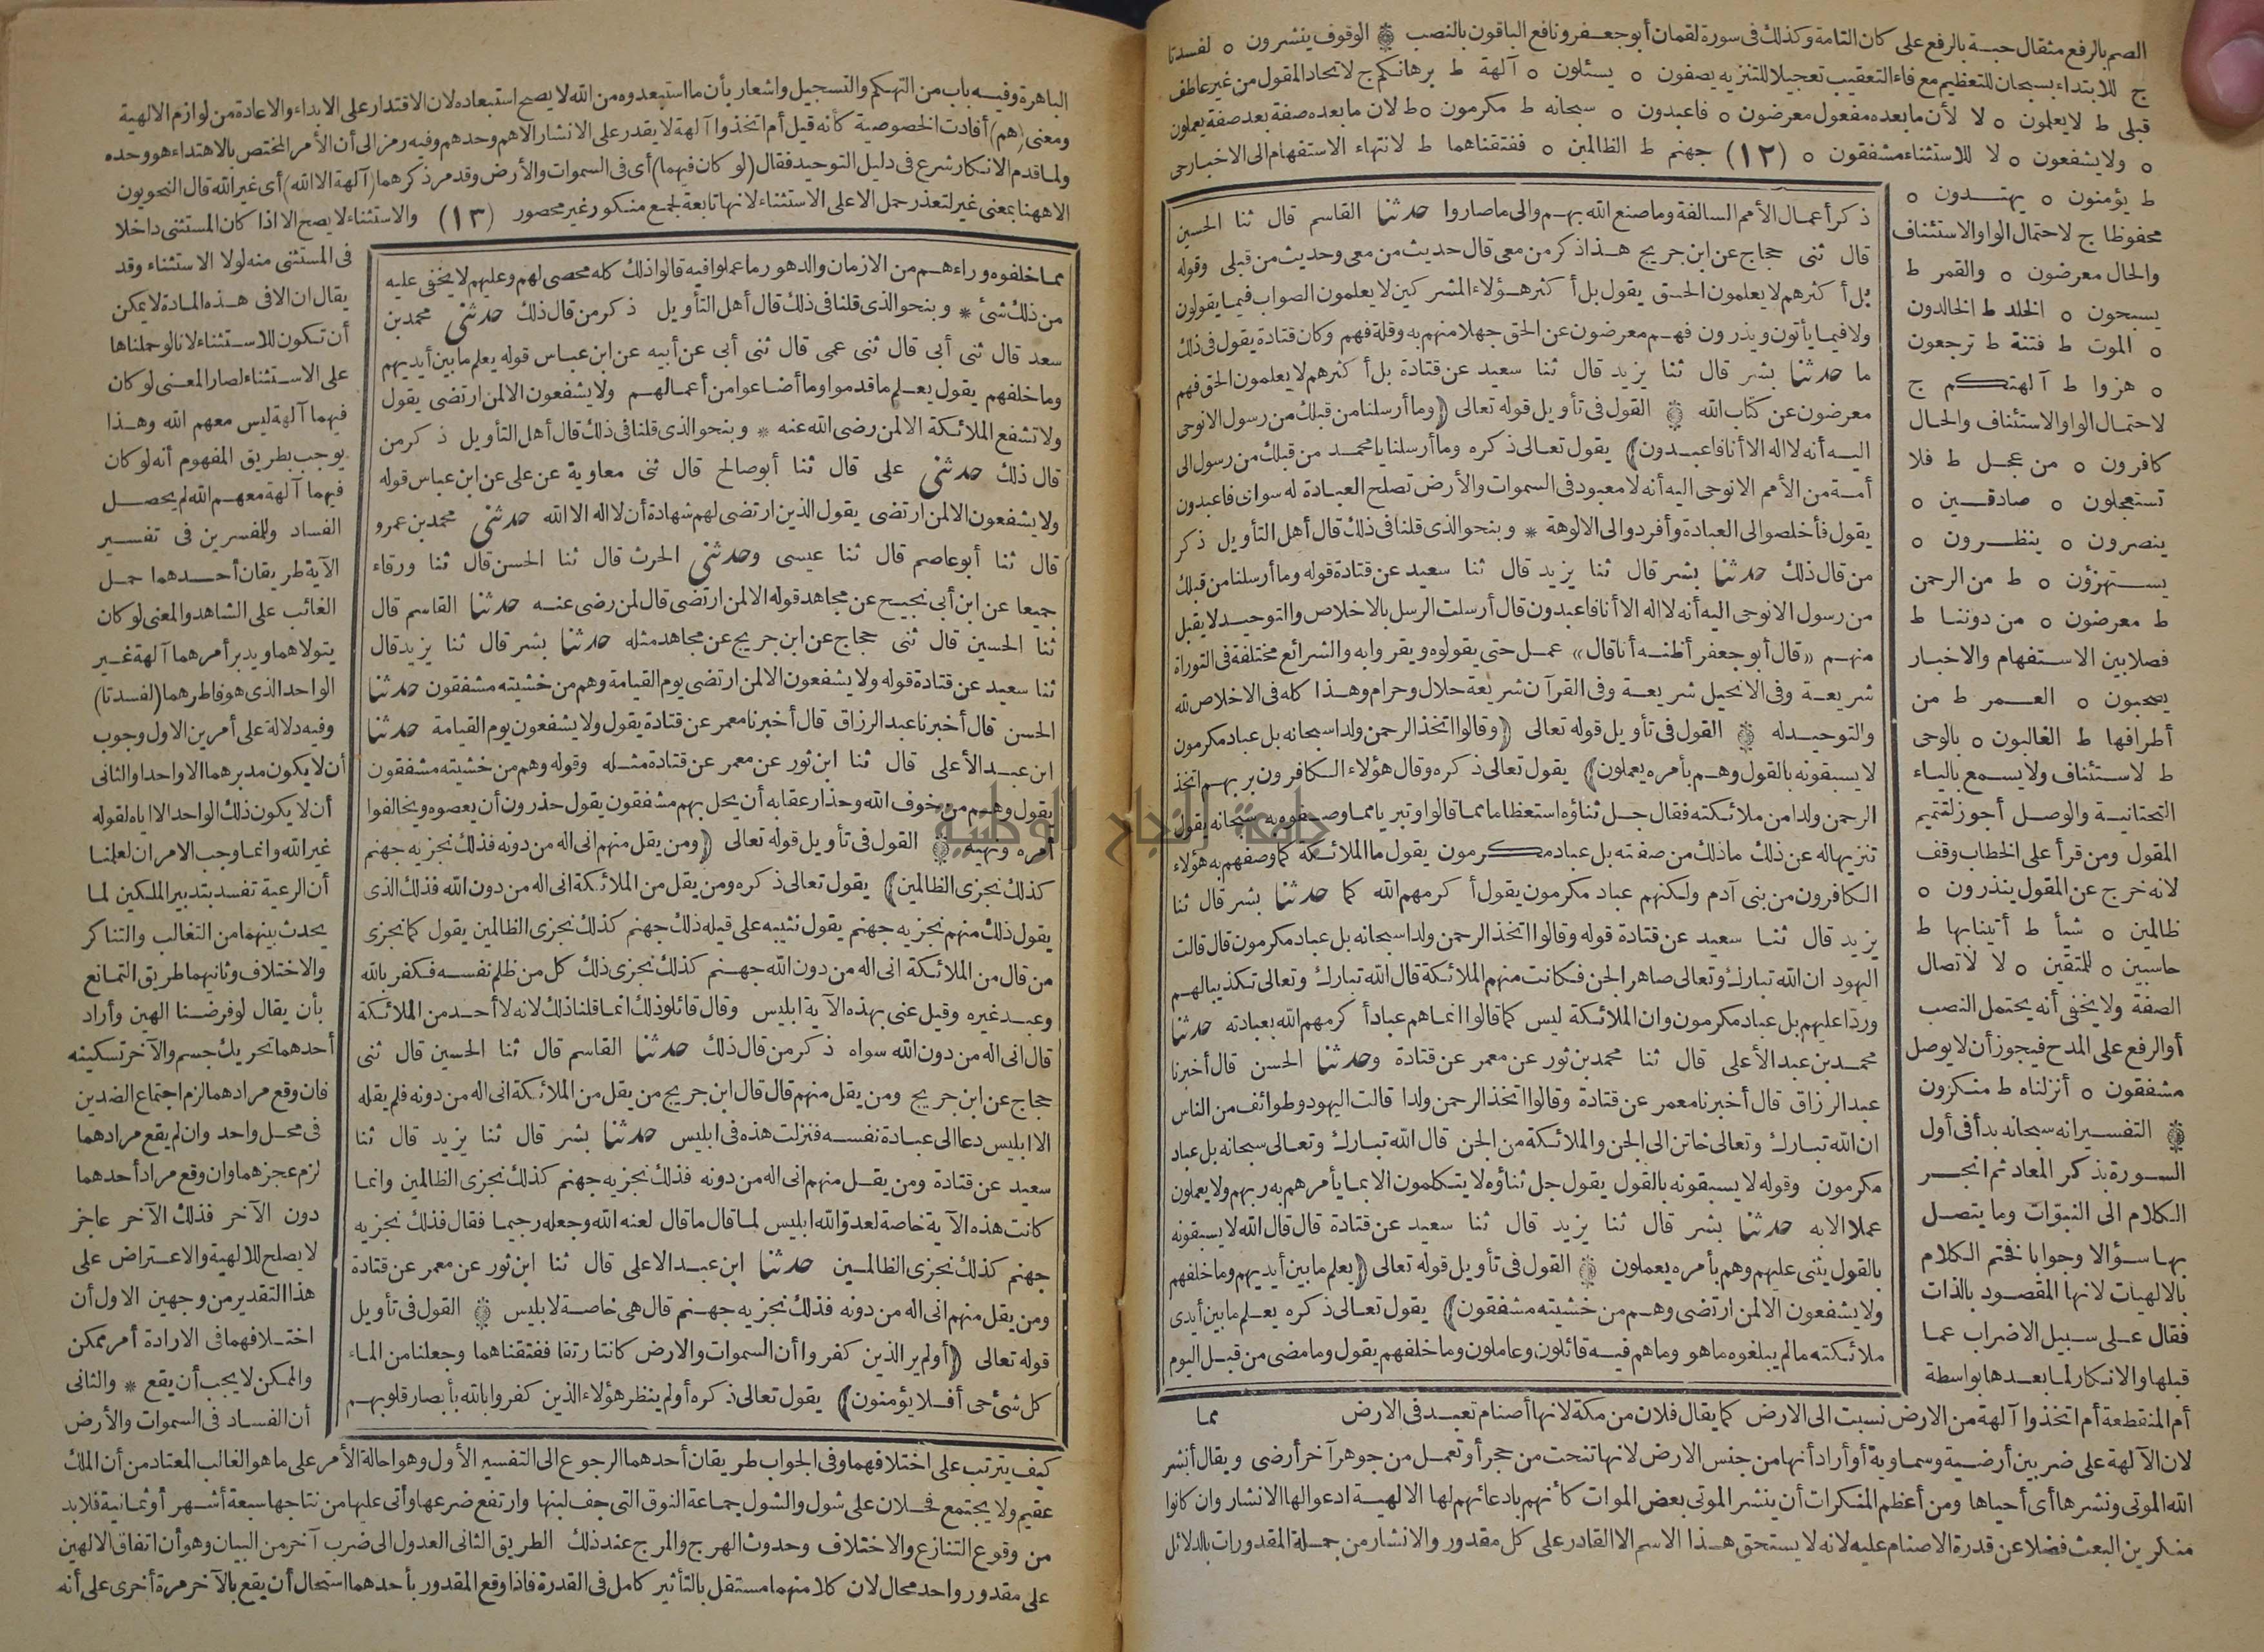 الصم بالرفع مثقال حبة بالرفع على كان التامة وكذلك فى سورة لقمان أبو جعفر ونافع الباقون بالنصب الوقوف ينشرون ه لفسدتا
ج للابتداء بسبحان للتعظيم مع فاء التعقيب تعجيلا للتنزيه يصفون ه يسئلون ه آلهة ط برهانكم ج لاتحاد المقول من غير عاطف
قبلى ط لايعلمون ه لا لأن مابعده مفعول معرضون ه فاعبدون ه سبحانه ط مكرمون ه ط لان مابعده صفة بعد صفة يعملون
ه ولايشفعون ه لا للاستثناء مشفقون ه (١٢) جهنم ط الظالمين ه ففتقناهما ط لانتهاء الاستفهام الى الاخبار حى
ط يؤمنون ه يهتدون ه
محفوظا ج لاحتمال الواو الاستئناف
والحال معرضون ه والقمر ط
يسبحون ه الخلد ط الخالدون
ه الموت ط فتنة ط ترجعون
ه هزوا ط آلهتكم ج
لاحتمال الواو الاستئناف والحال
كافرون ه من عجل ط فلا
تستعجلون ه صادقين ه
ينصرون ه ينظرون ه
يستهزؤن ه ط من الرحمن
ط معرضون ه من دوننا ط
فصلا بين الاستفهام والاخبار
يصحبون ه العمر ط من
أطرافها ط الغالبون ه بالوحى
ط لاستئناف ولايسمع بالياء
التحتانية والوصل أجوز لتتميم
المقول ومن قرأ على الخطاب وقف
لانه خرج عن المقول ينذرون ه
ظالمين ه شيأ ط أتينابها ط
حاسبين ه للمتقين ه لا لاتصال
الصفة ولا يخفى أنه يحتمل النصب
أو الرفع على المدح فيجوز أن لايوصل
مشفقون ه أنزلناه ط منكرون
التفسير انه سبحانه بدأ فى أول
السورة بذكر المعاد ثم انجر
الكلام الى النبوات وما يتصل
بها سؤالا وجوابا فختم الكلام
بالالهيات لانها المقصود بالذات
فقال على سبيل الاضراب عما
قبلها والانكار لما بعدها بواسطة
ذكر أعمال الأمم السالفة وما صنع الله بهم والى ماصاروا حدثنا القاسم قال ثنا الحسين
قال ثنى حجاج عن ابن جريج هذا ذكر من معى قال حديث من معى وحديث من قبلى وقوله
بل أكثرهم لايعلمون الحق يقول بل أكثر هؤلاء المشركين لايعلمون الصواب فيما يقولون
ولا فيما يأتون ويذرون فهم معرضون عن الحق جهلا منهم به وقلة فهم وكان قتادة يقول فى ذلك
ما حدثنا بشر قال ثنا يزيد قال ثنا سعيد عن قتادة بل أكثرهم لايعلمون الحق فهم
معرضون عن كتاب الله القول فى تأويل قوله تعالى (وما أرسلنا من قبلك من رسول الا نوحى
اليه أنه لا اله الا أنا فاعبدون) يقول تعالى ذكره وما أرسلنا يا محمد من قبلك من رسول الى
أمة من الأمم الا نوحى اليه أنه لا معبود فى السموات والأرض تصلح العبادة له سواى فاعبدون
يقول فأخلصوا لى العبادة وأفردوا لى الالوهة * وبنحو الذى قلنا فى ذلك قال أهل التأويل ذكر
من قال ذلك حدثنا بشر قال ثنا يزيد قال ثنا سعيد عن قتادة قوله وما أرسلنا من قبلك
من رسول الا نوحى اليه أنه لا اله الا أنا فاعبدون قال أرسلت الرسل بالاخلاص والتوحيد لا يقبل
منهم «قال أبو جعفر أظنه أنا قال» عمل حتى يقولوه ويقروا به والشرائع مختلفة فى التوراة
شريعة وفى الانجيل شريعة وفى القرآن شريعة حلال وحرام وهذا كله فى الاخلاص لله
والتوحيد له القول فى تأويل قوله تعالى (وقالوا اتخذ الرحمن ولدا سبحانه بل عباد مكرمون
لا يسبقونه بالقول وهم بأمره يعملون) يقول تعالى ذكره وقال هؤلاء الكافرون بربهم اتخذ
الرحمن ولدا من ملائكته فقال جل ثناؤه استعظاما مما قالوا وتبريا مما وصفوه به سبحانه يقول
تنزيها له عن ذلك ماذلك من صفته بل عباد مكرمون يقول ما الملائكة كما وصفهم به هؤلاء
الكافرون من بنى آدم ولكنهم عباد مكرمون يقول أكرمهم الله كما حدثنا بشر قال ثنا
يزيد قال ثنا سعيد عن قتادة قوله وقالوا اتخذ الرحمن ولدا سبحانه بل عباد مكرمون قال قالت
اليهود ان الله تبارك وتعالى صاهر الجن فكانت منهم الملائكة قال الله تبارك وتعالى تكذيبا لهم
وردا عليهم بل عباد مكرمون وان الملائكة ليس كما قالوا انما هم عباد أكرمهم الله بعبادته حدثنا
محمد بن عبد الأعلى قال ثنا محمد بن ثور عن معمر عن قتادة وحدثنا الحسن قال أخبرنا
عبد الرزاق قال أخبرنا معمر عن قتادة وقالوا اتخذ الرحمن ولدا قالت اليهود وطوائف من الناس
ان الله تبارك وتعالى خاتن الى الجن والملائكة من الجن قال الله تبارك وتعالى سبحانه بل عباد
مكرمون وقوله لا يسبقونه بالقول يقول جل ثناؤه لا يتكلمون الا بما يأمرهم به ربهم ولا يعملون
عملا الا به حدثنا بشر قال ثنا يزيد قال ثنا سعيد عن قتادة قال قال الله لا يسبقونه
بالقول يثنى عليهم وهم بأمره يعملون القول فى تأويل قوله تعالى (يعلم ما بين أيديهم وما خلفهم
ولا يشفعون الا لمن ارتضى وهم من خشيته مشفقون) يقول تعالى ذكره يعلم ما بين أيدى
ملائكته مالم يبلغوه ماهو وما هم فيه قائلون وعاملون وما خلفهم يقول وما مضى من قبل اليوم
أم المنقطعة أم اتخذوا آلهة من الارض نسبت الى الارض كما يقال فلان من مكة لانها أصنام تعبد فى الارض مما
لان الآلهة على ضربين أرضية وسماوية أو أراد أنها من جنس الارض لانها تنحت من حجر أو تعمل من جوهر آخر أرضى ويقال أنشر
الله الموتى ونشرها أى أحياها ومن أعظم المنكرات أن ينشر الموتى بعض الموات كأنهم بادعائهم لها الالهية ادعوا لها الانشار وان كانوا
منكرين البعث فضلا عن قدرة الاصنام عليه لانه لا يستحق هذا الاسم الا القادر على كل مقدور والانشار من جملة المقدورات بالدلائل
الباهرة وفيه باب من التهكم والتسجيل واشعار بأن ما استبعدوه من الله لا يصح استبعاده لان الاقتدار على الابداء والاعادة من لوازم الالهية
ومعنى (هم) أفادت الخصوصية كأنه قيل أم اتخذوا آلهة لا يقدر على الانشار الا هم وحدهم وفيه رمز الى أن الأمر المختص بالاهتداء هو وحده
ولما قدم الانكار شرع فى دليل التوحيد فقال (لو كان فيهما) أى فى السموات والأرض وقد مر ذكرهما (آلهة الا الله) أى غير الله قال النحويون
الا ههنا بمعنى غير لتعذر حمل الا على الاستثناء لانها تابعة لجمع منكور غير محصور (١٣) والاستثناء لا يصح الا اذا كان المستثنى داخلا
فى المستثنى منه لولا الاستثناء وقد
يقال ان الا فى هذه المادة لا يمكن
أن تكون للاستثناء لانا لو حملناها
على الاستثناء لصار المعنى لو كان
فيهما آلهة ليس معهم الله وهذا
يوجب بطريق المفهوم أنه لو كان
فيهما آلهة معهم الله لم يحصل
الفساد وللمفسرين فى تفسير
الآية طريقان أحدهما حمل
الغائب على الشاهد والمعنى لو كان
يتولاهما ويدبر أمرهما آلهة غير
الواحد الذى هو فاطرهما (لفسدتا)
وفيه دلالة على أمرين الاول وجوب
أن لا يكون مدبرهما الا واحدا والثانى
أن لا يكون ذلك الواحد الا اياه لقوله
غير الله وانما وجب الامران لعلمنا
أن الرعية تفسد بتدبير الملكين لما
يحدث بينهما من التغالب والتناكر
والاختلاف وثانيهما طريق التمانع
بأن يقال لو فرضنا الهين وأراد
أحدهما تحريك جسم والآخر تسكينه
فان وقع مرادهما لزم اجتماع الضدين
فى محل واحد وان لم يقع مرادهما
لزم عجزهما وان وقع مراد أحدهما
دون الآخر فذلك الآخر عاجز
لا يصلح للالهية والاعتراض على
هذا التقدير من وجهين الاول أن
اختلافهما فى الارادة أمر ممكن
والممكن لا يجب أن يقع * والثانى
أن الفساد فى السموات والأرض
مما خلفوه وراءهم من الازمان والدهور ما عملوا فيه قالوا ذلك كله محصى لهم وعليهم لا يخفى عليه
من ذلك شئ * وبنحو الذى قلنا فى ذلك قال أهل التأويل ذكر من قال ذلك حدثنى محمد بن
سعد قال ثنى أبى قال ثنى عمى قال ثنى أبى عن أبيه عن ابن عباس قوله يعلم ما بين أيديهم
وما خلفهم يقول يعلم ما قدموا وما أضاعوا من أعمالهم ولا يشفعون الا لمن ارتضى يقول
ولا تشفع الملائكة الا لمن رضى الله عنه * وبنحو الذى قلنا فى ذلك قال أهل التأويل ذكر من
قال ذلك حدثنى على قال ثنا أبو صالح قال ثنى معاوية عن على عن ابن عباس قوله
ولا يشفعون الا لمن ارتضى يقول الذين ارتضى لهم شهادة أن لا اله الا الله حدثنى محمد بن عمرو
قال ثنا أبو عاصم قال ثنا عيسى وحدثنى الحرث قال ثنا الحسن قال ثنا ورقاء
جميعا عن ابن أبى نجيح عن مجاهد قوله الا لمن ارتضى قال لمن رضى عنه حدثنا القاسم قال
ثنا الحسين قال ثنى حجاج عن ابن جريج عن مجاهد مثله حدثنا بشر قال ثنا يزيد قال
ثنا سعيد عن قتادة قوله ولا يشفعون الا لمن ارتضى يوم القيامة وهم من خشيته مشفقون حدثنا
الحسن قال أخبرنا عبد الرزاق قال أخبرنا معمر عن قتادة يقول ولا يشفعون يوم القيامة حدثنا
ابن عبد الأعلى قال ثنا ابن ثور عن معمر عن قتادة مثله وقوله وهم من خشيته مشفقون
يقول وهم من خوف الله وحذار عقابه أن يحل بهم مشفقون يقول حذرون أن يعصوه ويخالفوا
أمره ونهيه القول فى تأويل قوله تعالى (ومن يقل منهم انى اله من دونه فذلك نجزيه جهنم
كذلك نجزى الظالمين) يقول تعالى ذكره ومن يقل من الملائكة انى اله من دون الله فذلك الذى
يقول ذلك منهم نجزيه جهنم يقول نثيبه على قيله ذلك جهنم كذلك نجزى الظالمين يقول كما نجزى
من قال من الملائكة انى اله من دون الله جهنم كذلك نجزى ذلك كل من ظلم نفسه فكفر بالله
وعبد غيره وقيل عنى بهذه الآية ابليس وقال قائلو ذلك انما قلنا ذلك لانه لا أحد من الملائكة
قال انى اله من دون الله سواه ذكر من قال ذلك حدثنا القاسم قال ثنا الحسين قال ثنى
حجاج عن ابن جريج ومن يقل منهم قال قال ابن جريج من يقل من الملائكة انى اله من دونه فلم يقله
الا ابليس دعا الى عبادة نفسه فنزلت هذه فى ابليس حدثنا بشر قال ثنا يزيد قال ثنا
سعيد عن قتادة ومن يقل منهم انى اله من دونه فذلك نجزيه جهنم كذلك نجزى الظالمين وانما
كانت هذه الآية خاصة لعدو الله ابليس لما قال ما قال لعنه الله وجعله رجيما فقال فذلك نجزيه
جهنم كذلك نجزى الظالمين حدثنا ابن عبد الاعلى قال ثنا ابن ثور عن معمر عن قتادة
ومن يقل منهم انى اله من دونه فذلك نجزيه جهنم قال هى خاصة لابليس القول فى تأويل
قوله تعالى (أولم ير الذين كفروا أن السموات والارض كانتا رتقا ففتقناهما وجعلنا من الماء
كل شئ حى أفلا يؤمنون) يقول تعالى ذكره أولم ينظر هؤلاء الذين كفروا بالله بأبصار قلوبهم
كيف يترتب على اختلافهما وفى الجواب طريقان أحدهما الرجوع الى التفسير الأول وهو احالة الأمر على ما هو الغالب المعتاد من أن الملك
عقيم ولا يجتمع فحلان على شول والشول جماعة النوق التى جف لبنها وارتفع ضرعها وأتى عليها من نتاجها سبعة أشهر أو ثمانية فلابد
من وقوع التنازع والاختلاف وحدوث الهرج والمرج عند ذلك الطريق الثانى العدول الى ضرب آخر من البيان وهو أن اتفاق الالهين
على مقدور واحد محال لان كلا منهما مستقل بالتأثير كامل فى القدرة فاذا وقع المقدور بأحدهما استحال أن يقع بالآخر مرة أخرى على أنه
جامعة النجاح الوطنية